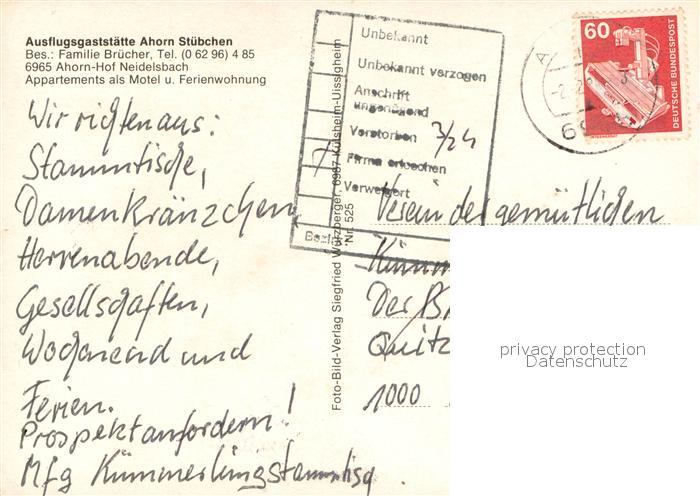 Ausflugsgaststätte Ahorn Stübchen
Bes.: Familie Brücher, Tel. (0 62 96) 4 85
6965 Ahorn-Hof Neidelsbach
Appartements als Motel u. Ferienwohnung
Wir richten aus:
Stammtische,
Damenkränzchen,
Herrenabende,
Gesellschaften,
Wochenend und
Ferien.
Prospekt anfordern!
Mfg Kümmerlingstammtisch
Foto-Bild-Verlag Siegfried Würzberger, 6987 Külsheim-Uissigheim
Nr. 525
Unbekannt
Unbekannt verzogen
Anschrift
ungenügend
Verstorben
3/24
Firma erloschen
Verweigert
60
DEUTSCHE BUNDESPOST
Verein der gemütlichen
Der
1000
privacy protection
Datenschutz